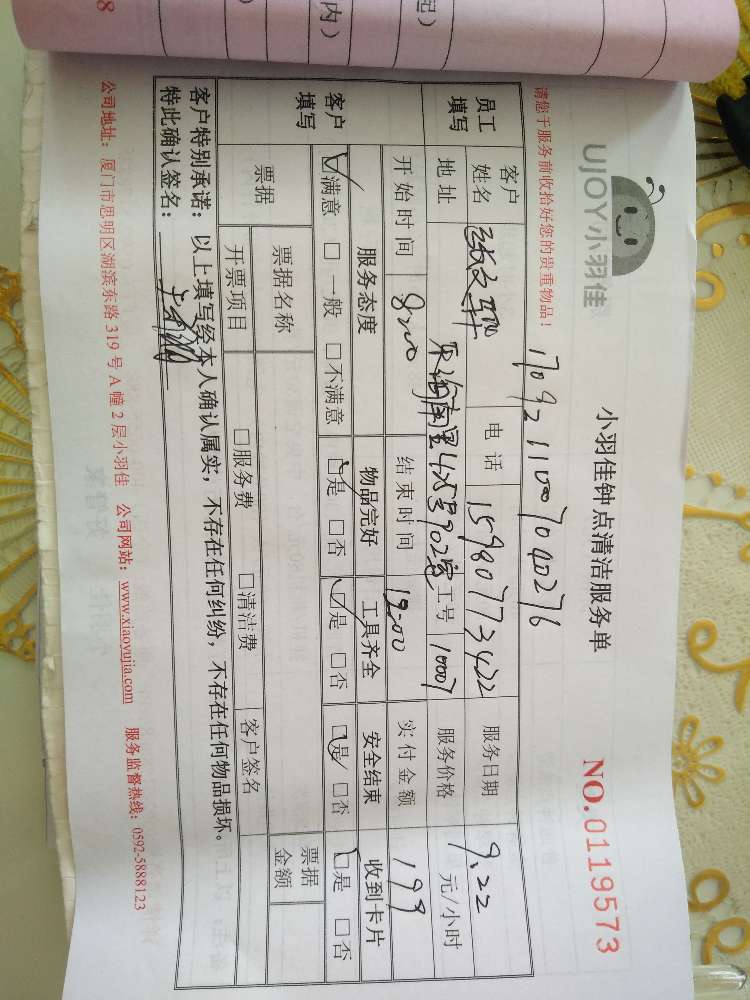 起）
内）
8
UJOY小羽佳
小羽佳钟点清洁服务单
NO.0119573
请您于服务前收拾好您的贵重物品！
170921100070040276
员工填写 客户姓名 电话 15980773422 服务日期 9.22
地址 425号902室 工号 10007 服务价格 元/小时
客户填写 开始时间 8:00 结束时间 12:00 实付金额 199
服务态度 物品完好 工具齐全 安全结束 收到卡片
☑满意 □一般 □不满意 ☑是 □否 ☑是 □否 ☑是 □否 ☑是 □否
票据 票据名称 票据金额
开票项目 □服务费 □清洁费 客户签名
客户特别承诺：以上填写经本人确认属实，不存在任何纠纷，不存在任何物品损坏。
特此确认签名：
公司地址：厦门市思明区湖滨东路 319 号 A 幢 2 层小羽佳 公司网站：www.xiaoyujia.com 服务监督热线：0592-5888123